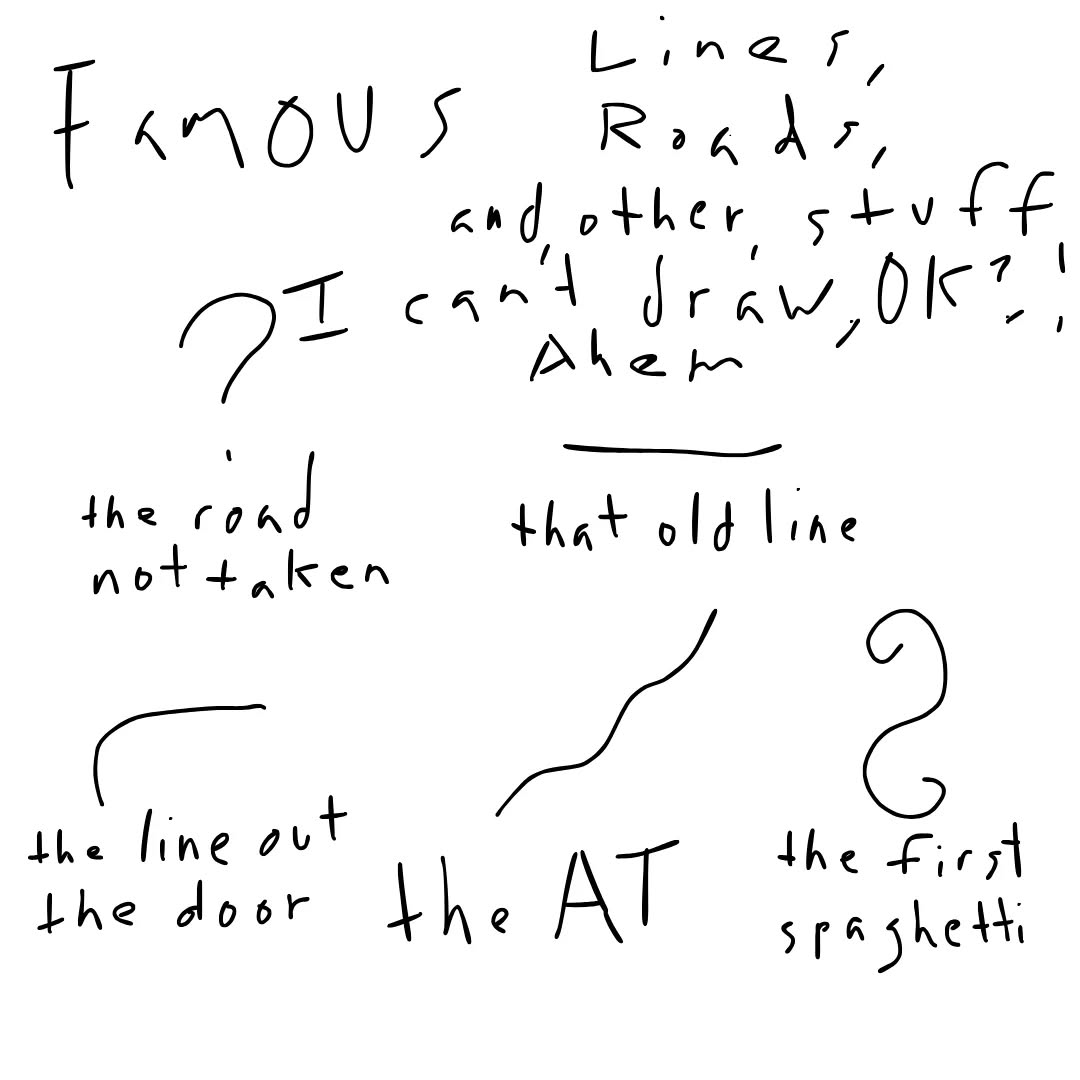 Famous Lines,
Roads,
and other stuff
I can't draw, OK?!
Ahem
the road
not taken
that old line
the line out
the door
the AT
the first
spaghetti